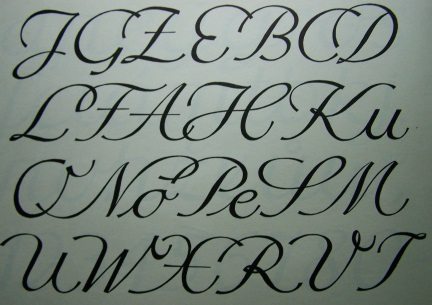 JGZEBCD
LFAHKu
QNoPeSM
UWXRVT